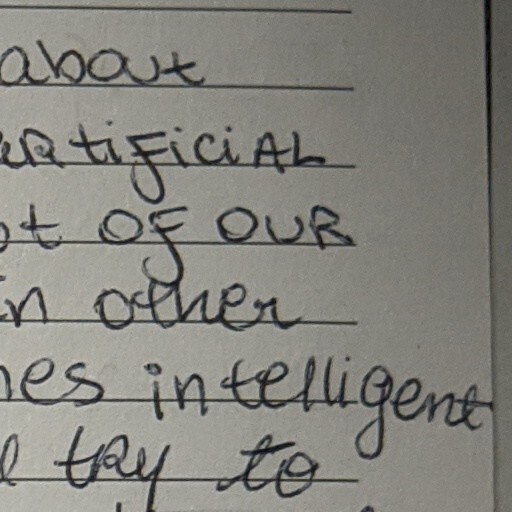 about
artificiAL
ot OF OUR
in other
nes intelligent
l try to